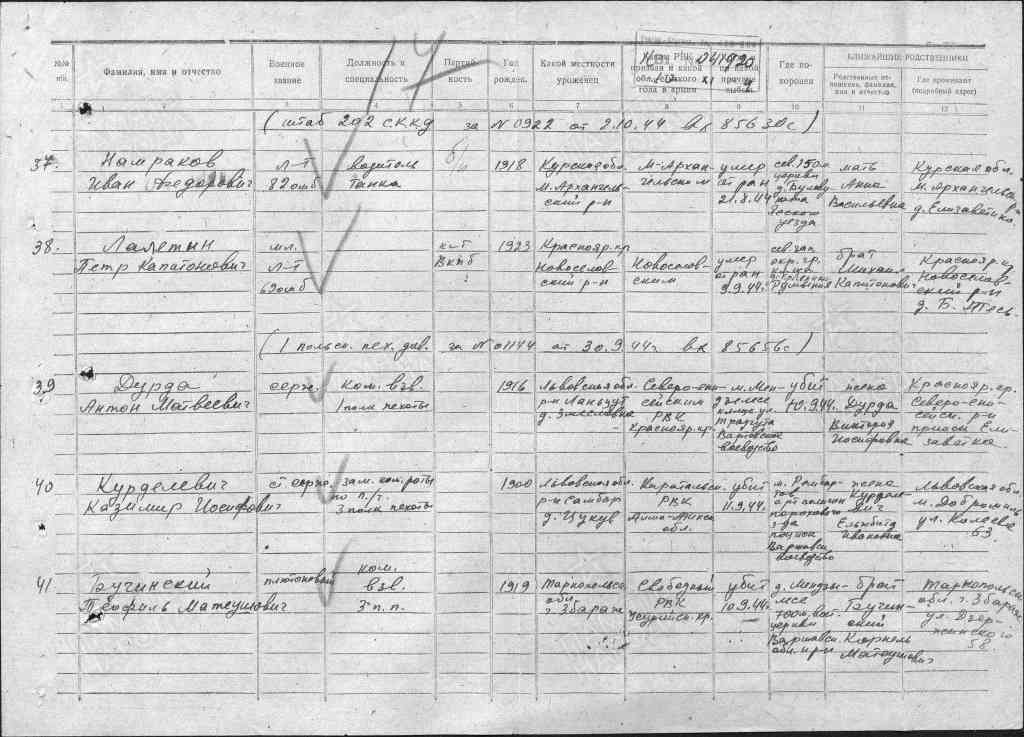 №№ пп.
Фамилия, имя и отчество
Военное звание
Должность и специальность
Партийность
Год рожден.
Какой местности уроженец
РВК призван и какой обл.
года в армии
Где похоронен
БЛИЖАЙШИЕ РОДСТВЕННИКИ
Родственные отношения, фамилия, имя и отчество
Где проживают (подробный адрес)
1 2 3 4 5 6 7 8 9 10 11 12
(штаб 202 СККД за № 0922 от 2.10.44 вх 85630с)
37. Намраков Иван Федорович
л-т 82 отб
водитель танка
б/п
1918
Курская обл. М.Архангельский р-н
М-Архангельским
умер от ран 21.8.44
мать Анна Васильевна
Курская обл. М.Архангельск. д. Елизаветино.
38. Лалетин Петр Капитонович
мл. л-т
к-т ВКПб
1923
Краснояр. кр. Новоселовский р-н
Новоселовским
умер от ран 9.9.44г.
Румыния
брат Михаил Капитонович
Краснояр. кр. Новоселовский р-н д. Б. Тесь.
(1 польск. пех. див. за № 01144 от 30.9.44г вх 85656с)
39 Дурда Антон Матвеевич
серж.
ком. взв. 1 полк пехоты
-
1916
Львовская обл. р-н Ланьцут
Северо-енисейским РВК Краснояр. кр.
убит 10.9.44.
жена Дурда Виктория Иосифовна
Красноярс. кр. Северо-енисейск. р-н прииск Елизаветка
40 Курделевич Казимир Иосифович
ст. серж.
зам. ком. роты по п/ч. 3 полк пехоты
-
1900
Львовская обл. р-н Самбор. д. Цукув
Каратальск. РВК Алма-Атинс. обл.
убит 11.9.44.
жена Елизавета Ивановна
Львовская обл. м. Добромиль ул. Калеева 63.
41. Бучинский Теофиль Матеушович
плютоновый
ком. взв. 3 п.п.
1919
Тарнопольск. обл. г. Збараж
Свободный РВК Усурийск. кр.
убит 10.9.44г.
брат Бучинский Карнель Матеушович
Тарнопольск. обл. г. Збараж ул. Дзержинского 58.